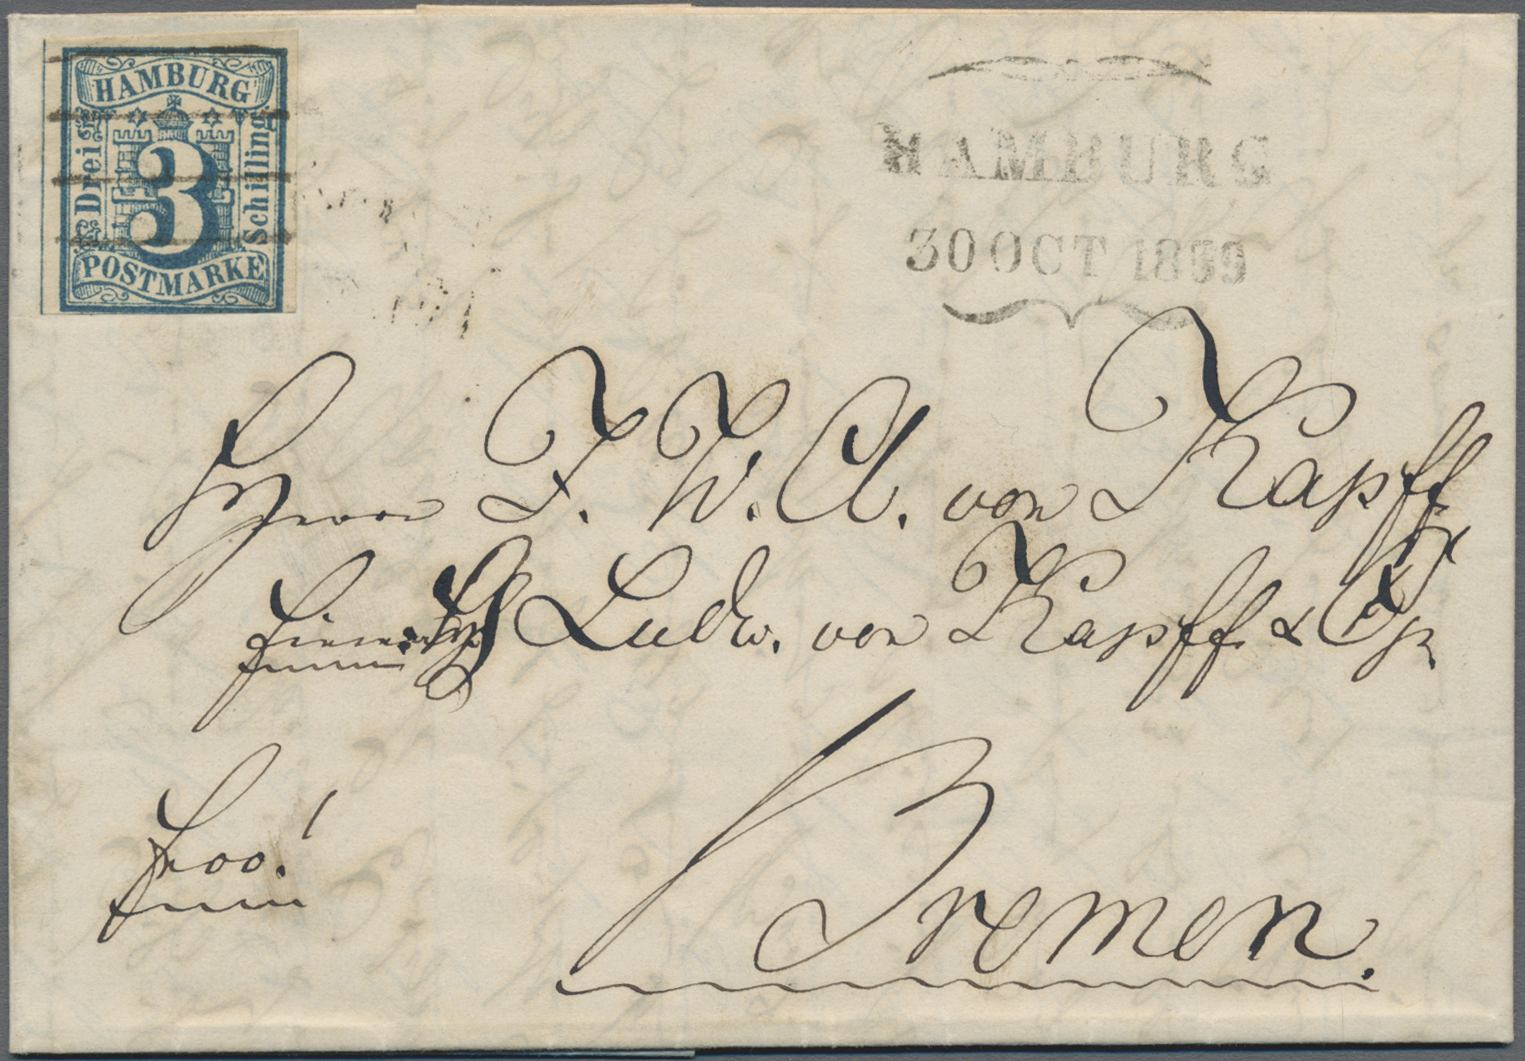 HAMBURG
Drei
3
Schilling
POSTMARKE
HAMBURG
30 OCT 1859
Herrn F. W. A. von Kapff
Ludw. von Kapff &
frco!
Bremen.